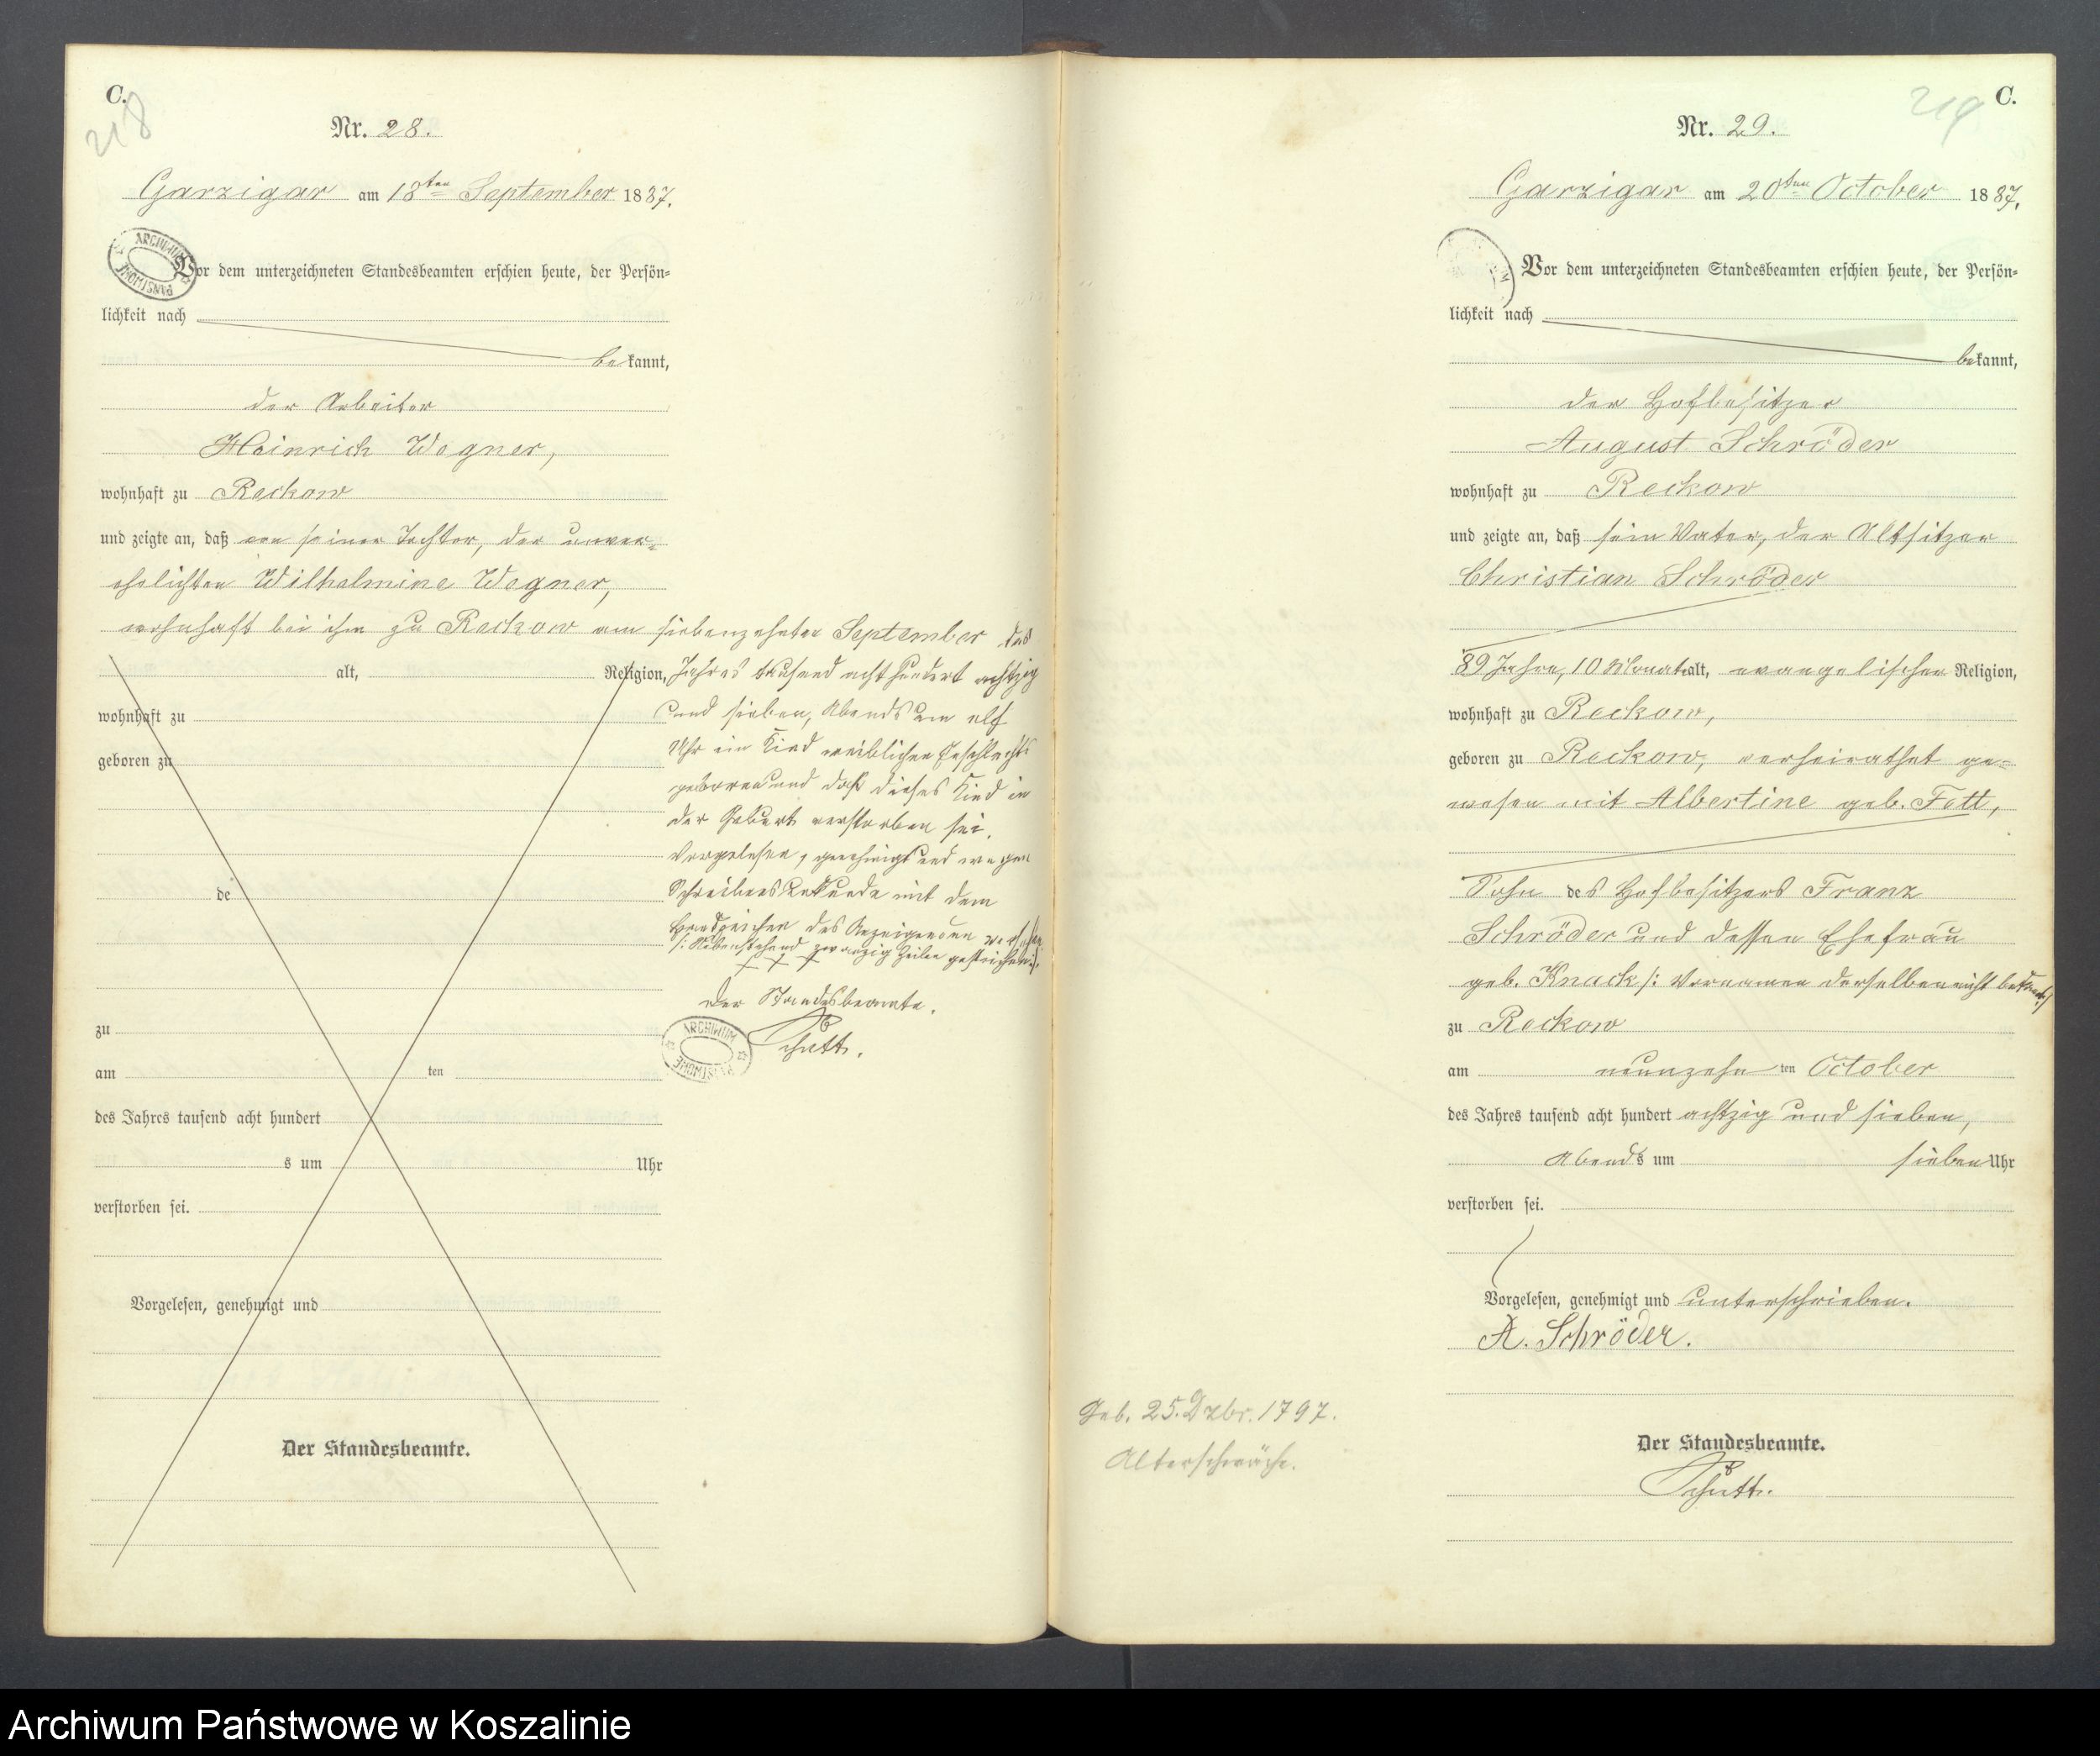 C.
218
Nr. 28.
Garzigar am 18ten September 1887.
ARCHIWUM PAŃSTWOWE
Vor dem unterzeichneten Standesbeamten erschien heute, der Persön-
lichkeit nach
bekannt,
der Arbeiter
Heinrich Wegner,
wohnhaft zu Reckow
und zeigte an, daß von seiner Tochter, der unver-
ehelichten Wilhelmine Wegner,
wohnhaft bei ihm zu Reckow am siebenzehnten September des
alt, Religion, Jahres tausend acht hundert achtzig
wohnhaft zu und sieben, Abends um elf
geboren zu Uhr ein Kind weiblichen Geschlechts
geboren und daß dieses Kind in
der Geburt verstorben sei.
Vorgelesen, genehmigt und wegen
de Schreibensunkunde mit dem
Handzeichen des Anzeigenden versehen
/: Nebenstehend zwanzig Zeilen gestrichen :/.
+ + +
Der Standesbeamte.
zu
ARCHIWUM PAŃSTWOWE
Schütt.
am ten
des Jahres tausend acht hundert
s um Uhr
verstorben sei.
Vorgelesen, genehmigt und
Der Standesbeamte.
C.
219
Nr. 29.
Garzigar am 20ten October 1887.
Vor dem unterzeichneten Standesbeamten erschien heute, der Persön-
lichkeit nach
bekannt,
der Hofbesitzer
August Schröder
wohnhaft zu Reckow
und zeigte an, daß sein Vater, der Altsitzer
Christian Schröder
89 Jahre, 10 Monate alt, evangelischer Religion,
wohnhaft zu Reckow,
geboren zu Reckow, verheirathet ge-
wesen mit Albertine geb. Fett,
Sohn des Hofbesitzers Franz
Schröder und dessen Ehefrau
geb. Knack /: Vornamen derselben nicht bekannt :/
zu Reckow
am neunzehnten October
des Jahres tausend acht hundert achtzig und sieben,
Abends um sieben Uhr
verstorben sei.
Vorgelesen, genehmigt und unterschrieben.
A. Schröder.
Geb. 25. Dzbr. 1797.
Altersschwäche.
Der Standesbeamte.
Schütt.
Archiwum Państwowe w Koszalinie